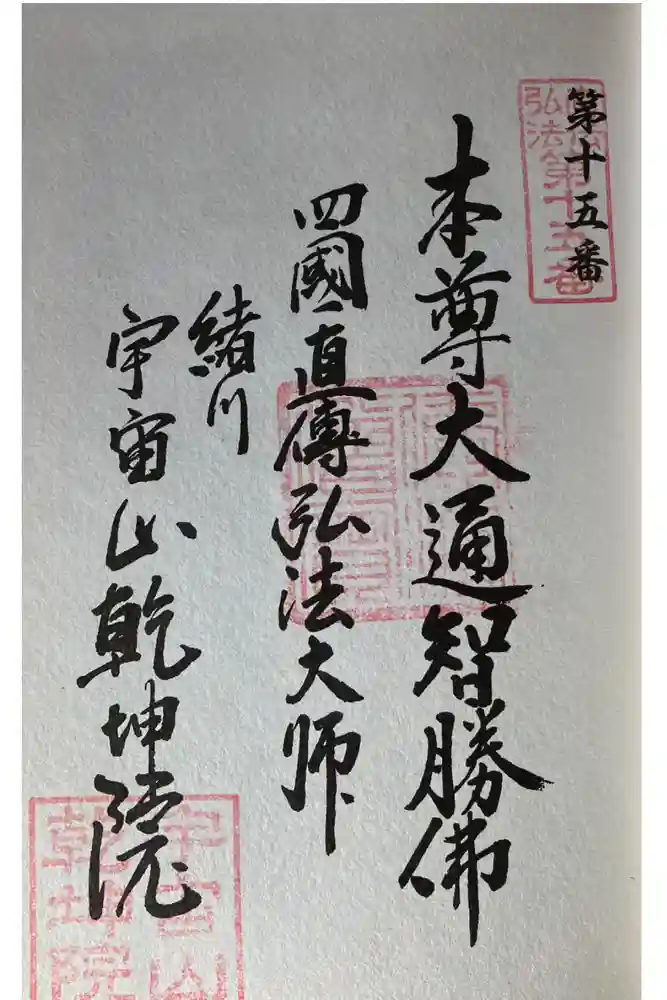 第十五番
弘法第十五番
本尊大通智勝佛
四國直傳弘法大师
緒川
宇宙山乾坤院
宇宙山
乾坤院